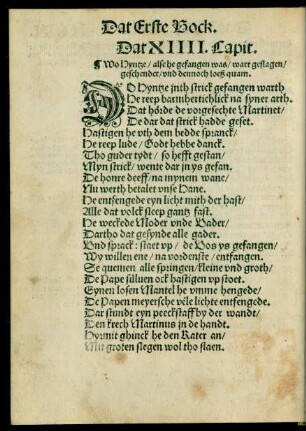 Dat Erste Bock.
Dat XIIII. Capit.
¶ Wo Hyntze / alse he gefangen was / wart geslagen /
geschendet / vnd dennoch loeß quam.
DO Hyntze jnth strick gefangen warth
He reep barmhertichlick na syner arth.
Dat hörde de vorgesechte Martinet /
De dar dat strick hadde geset.
Hastigen he vth dem bedde spranck /
He reep lude / Godt hebbe danck.
Tho guder tydt / so hefft gestan /
Myn strick / wente dar jn ys gefan.
De honre deeff / na mynem wane /
Nu werth betalet vnse Hane.
He entfengede eyn licht mith der hast /
Alle dat volck sleep gantz fast.
He weckede Moder vnde Vader /
Dartho dat gesynde alle gader.
Vnd sprack: staet vp / de Vos ys gefangen /
Wy willen ene / na vordenste / entfangen.
Se quemen alle springen / kleine vnd groth /
De Pape sülluen ock hastigen vp stoet.
Eynen losen Mantel he vmme hengede /
De Papen meyersche vele lichte entfengede.
Dar stundt eyn peeckstaff by der wandt /
Den krech Martinus in de handt.
Hyrmit ghinck he den Kater an /
Mit groten slegen wol tho slaen.